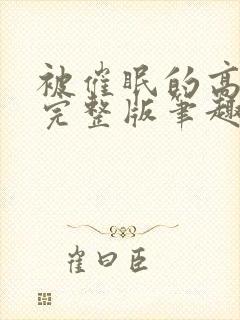 被催眠的高
完整版笔趣
崔曰臣